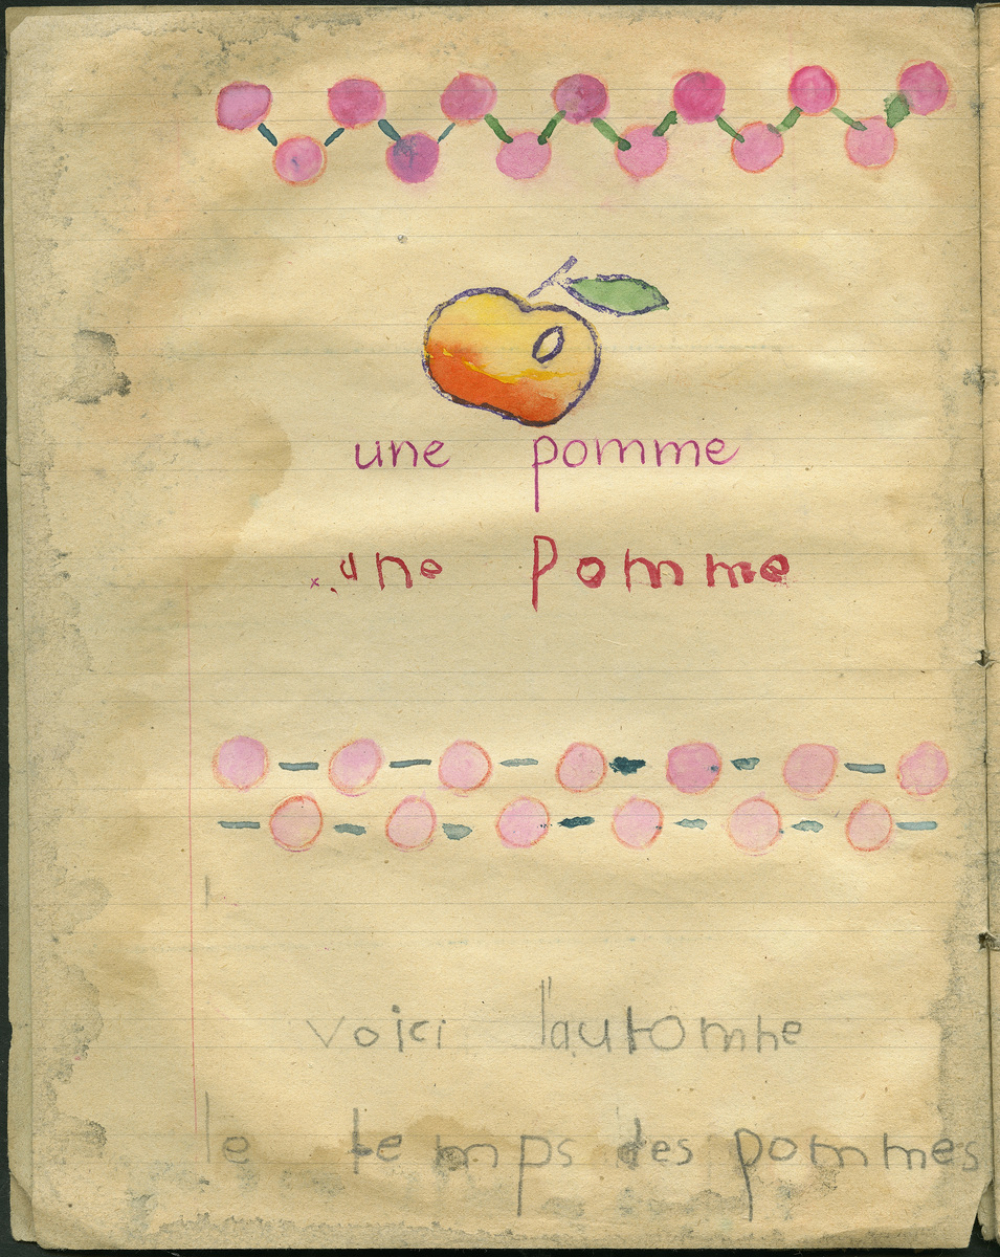 une pomme
une Pomme
voici l'automne
le temps des pommes